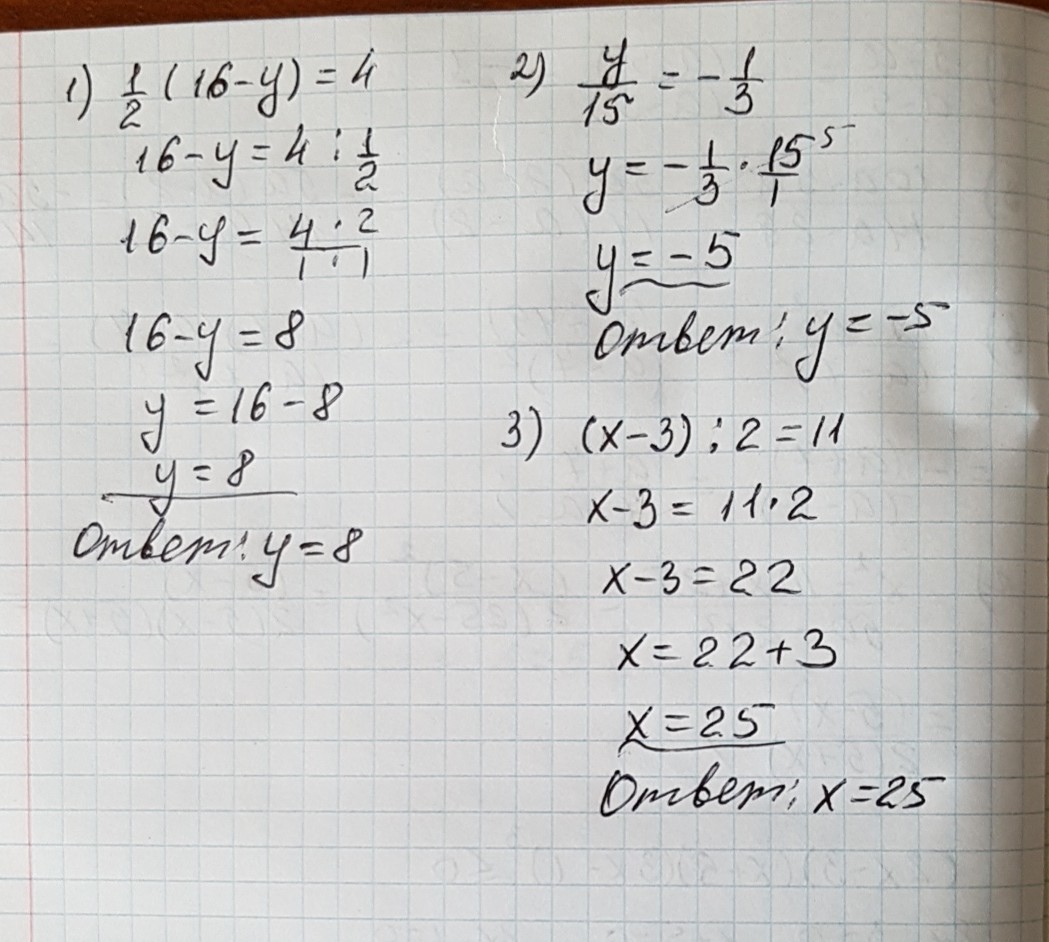 1) 1/2 (16-y) = 4
16-y = 4 : 1/2
16-y = 4 · 2 / 1 · 1
16-y = 8
y = 16 - 8
y = 8
Ответ: y = 8
2) y/15 = - 1/3
y = - 1/3 · 15/1 5
y = - 5
Ответ: y = -5
3) (x-3) : 2 = 11
x-3 = 11·2
x-3 = 22
x = 22+3
x = 25
Ответ: x = 25